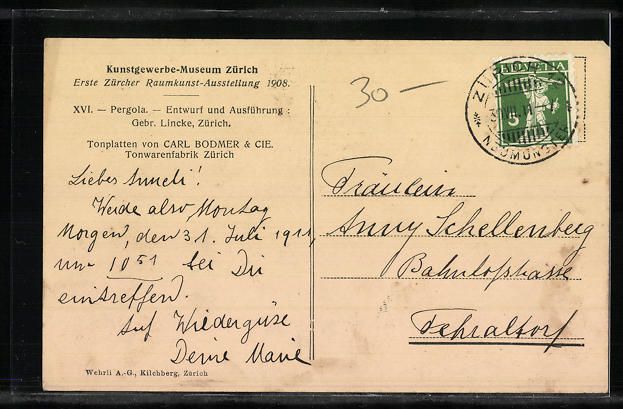 Kunstgewerbe-Museum Zürich
Erste Zürcher Raumkunst-Ausstellung 1908.
XVI. — Pergola. — Entwurf und Ausführung:
Gebr. Lincke, Zürich.
Tonplatten von CARL BODMER & CIE.
Tonwarenfabrik Zürich
Liebes Anneli!
Werde also Montag
Morgen, den 31. Juli 1911,
um 10 51 bei Dir
eintreffen.
Auf Wiedergüse
Deine Marie
Wehrli A.-G., Kilchberg, Zürich
30 —
HELVETIA
5
ZÜRICH
NEUMÜNSTER
Fräulein
Anny Schellenberg
Bahnhofstrasse
Fehraltorf